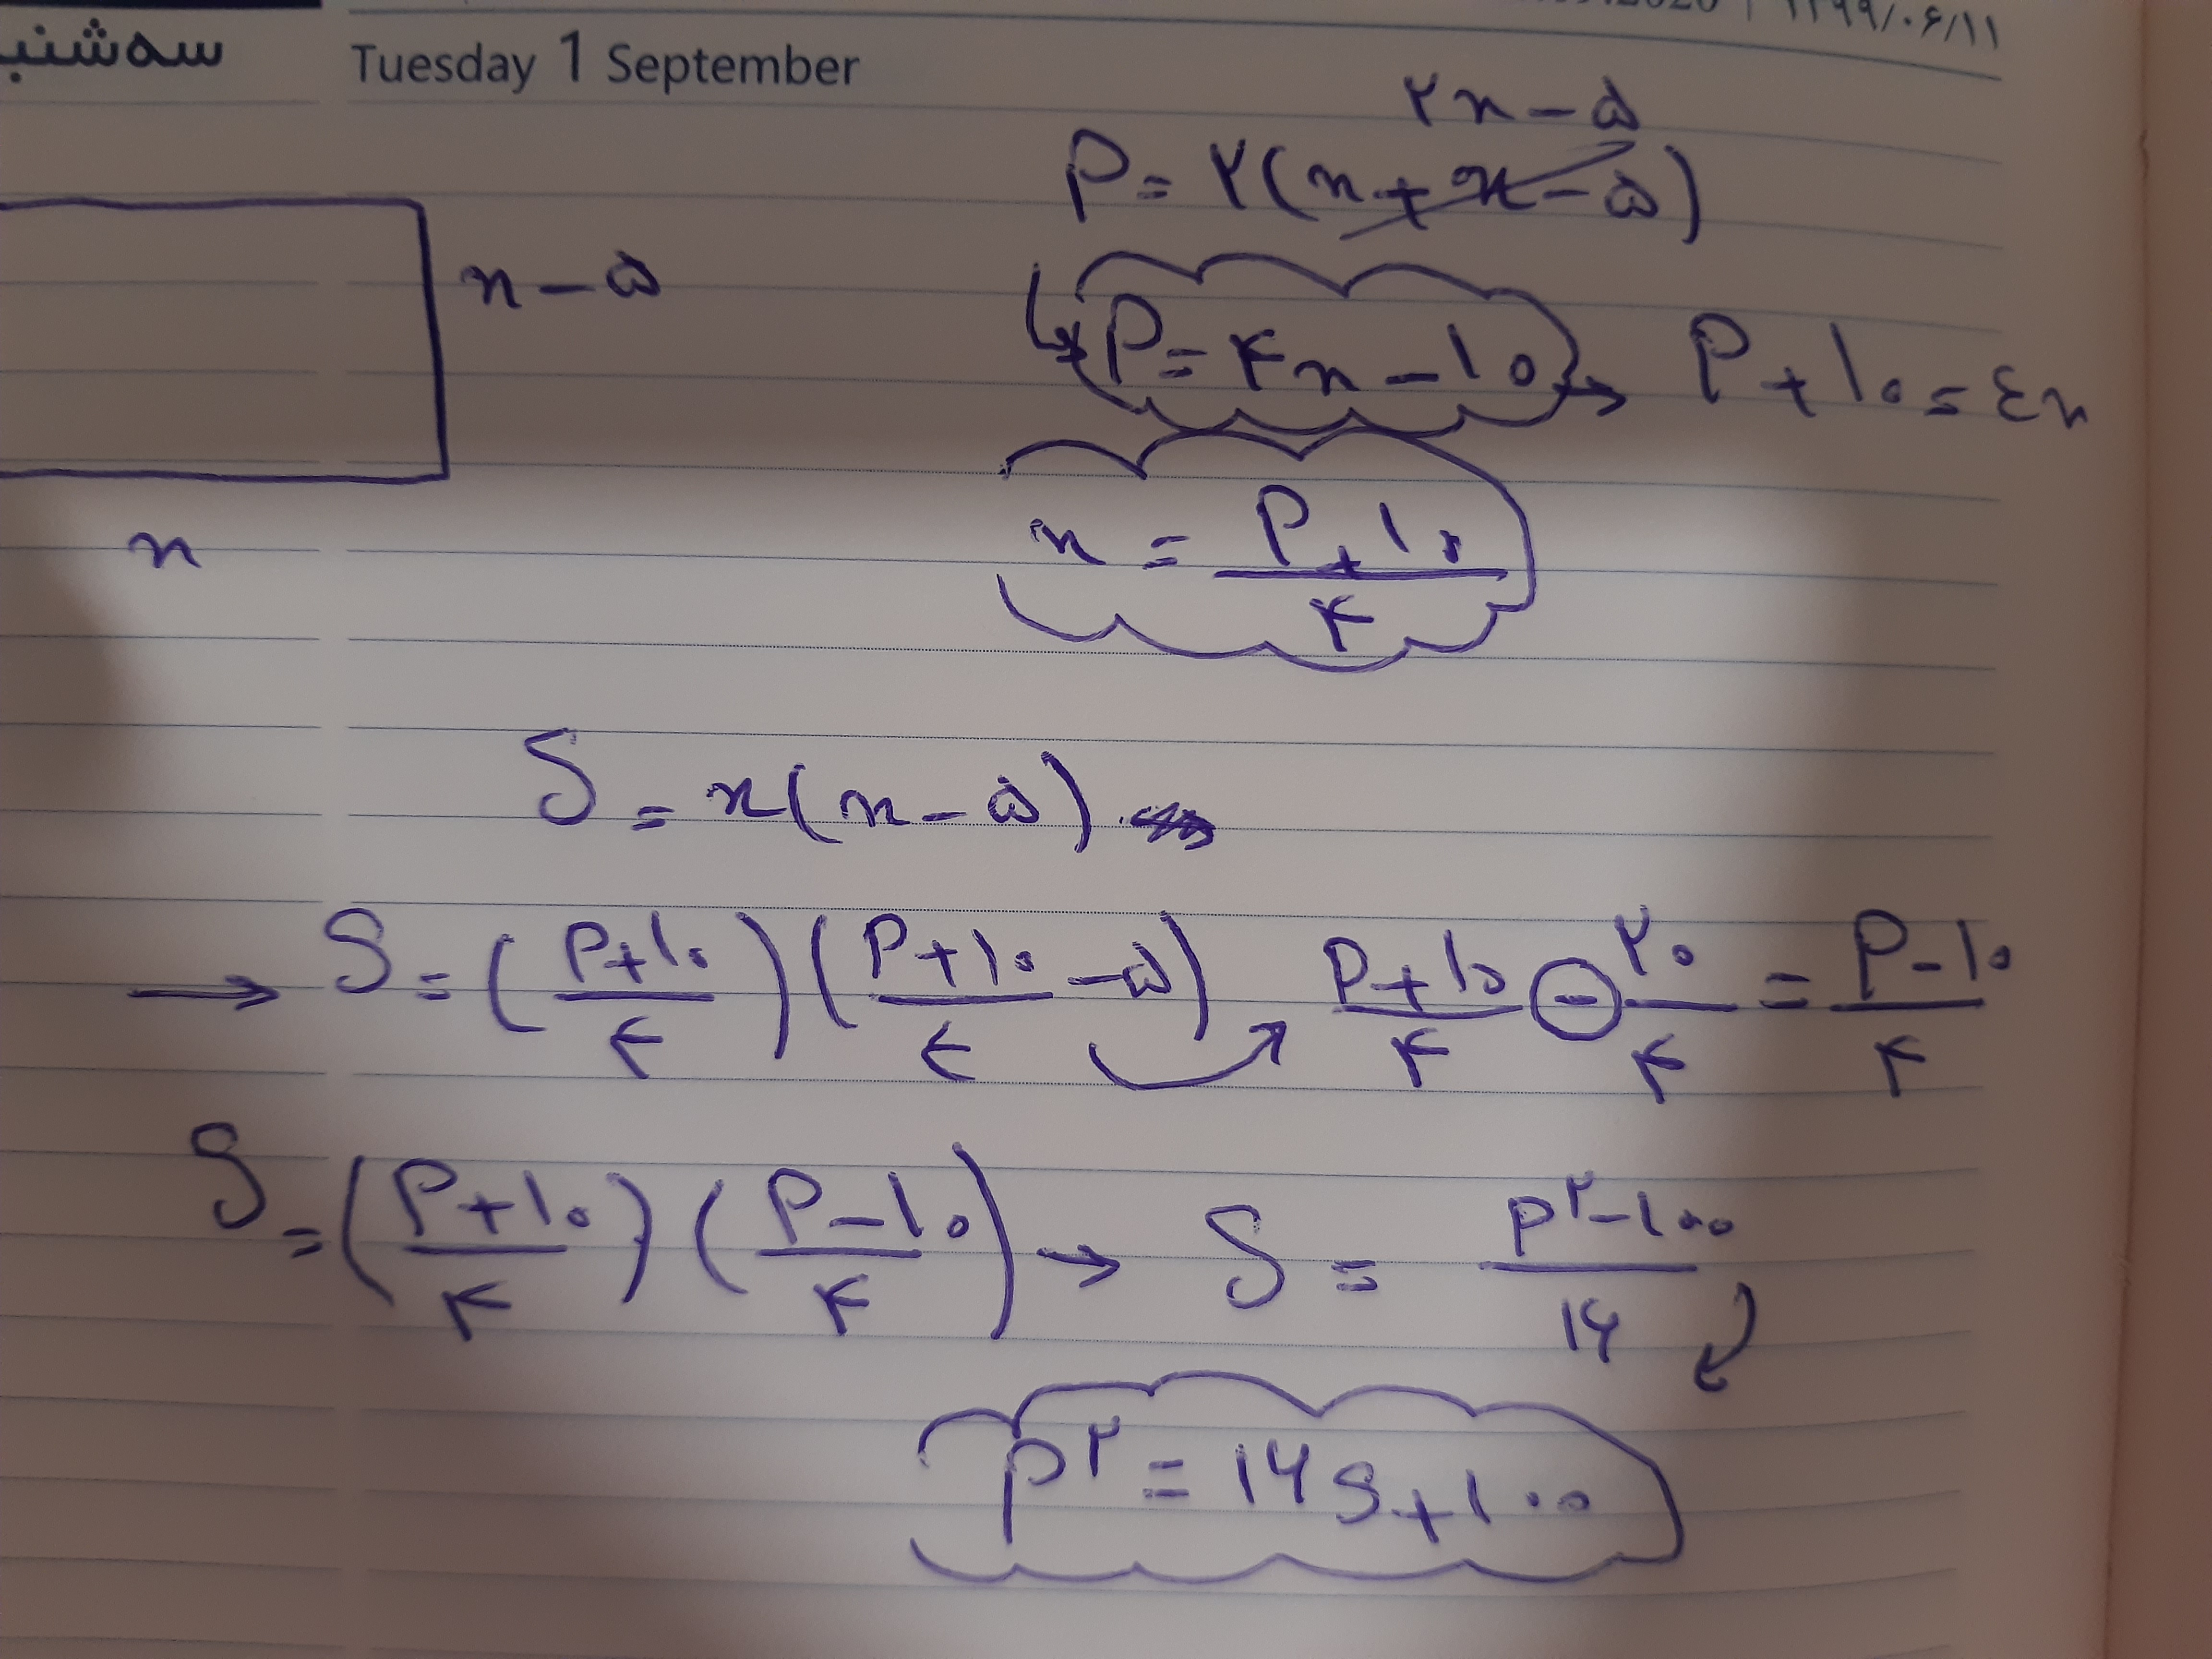 ۱۳۹۹/۰۶/۱۱
سه‌شنب
Tuesday 1 September
۲x-۵
P=۲(x+x-۵)
x-۵
P=۴x-۱۰ → P+۱۰=٤x
x = (P+۱۰)/۴
x
S=x(x-۵)
→ S=((P+۱۰)/۴)((P+۱۰)/۴ -۵) (P+۱۰)/۴ - ۲۰/۴ = (P-۱۰)/۴
S=((P+۱۰)/۴)((P-۱۰)/۴) → S = (P^۲-۱۰۰)/۱۶
P^۲=۱۶S+۱۰۰